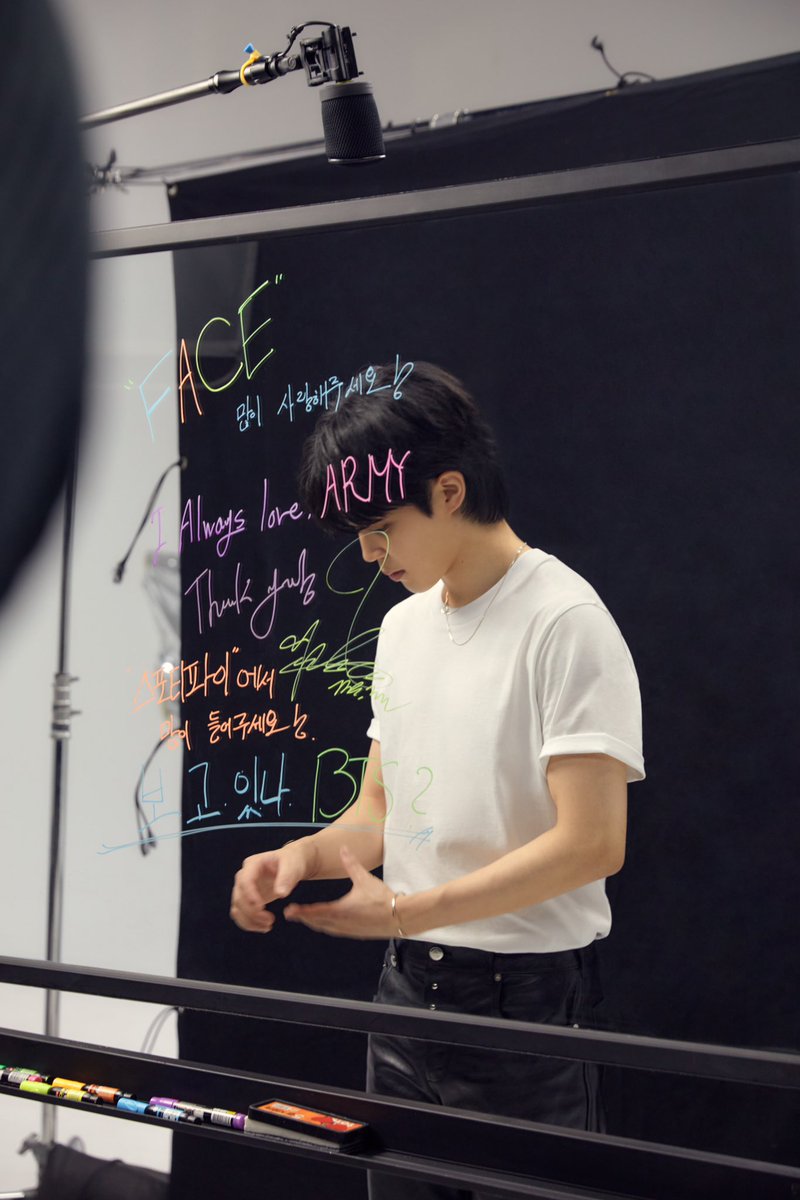 "FACE"
많이 사랑해주세요!
I Always love, ARMY
Thank you
"스포티파이"에서
많이 들어주세요!
보고.있나. BTS?